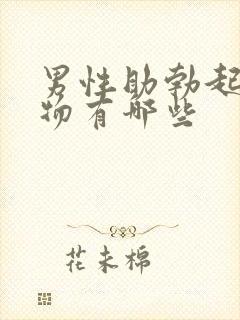 男性助勃起
物有哪些
花未棉